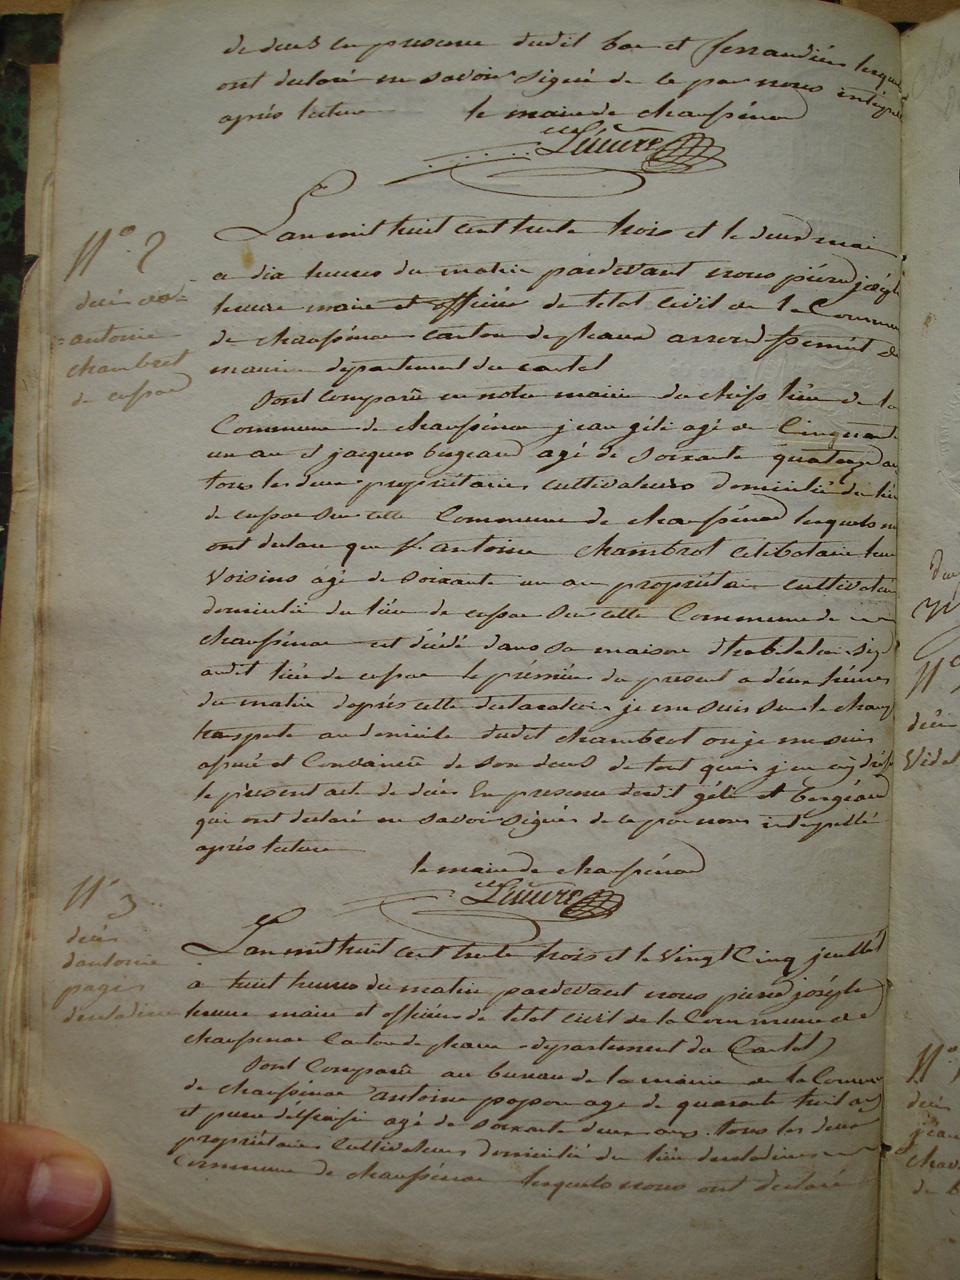 de deces en presence dudit bae et ferrandier lesquels
ont declaré ne savoir signé de ce par nous intérpellé
après lecture le maire de chaussénac
Leuvre
N° 2
decès
antoine
chambret
de cussac
L'an mil huit cent trente trois et le deux mai
a dix heures du matin pardevant nous piérre joséph
maire et officier de létat civil de la Commune
de chaussénac canton de pleaux arrondissemént de
mauriac département du cantal
Sont comparu en notre mairie du chéf lieu de la
Commune de chaussénac jean géli agé de Cinquante
un an et jacques bergeaud agé de soixante quatorze ans
tous les deux propriétaires cultivateurs domicilié du lieu
de cussac sur cette Commune de chaussénac lesquels nous
ont declaré que antoine chambret célibataire leur
voisins agé de soixante un an propriétaire cultivateur
domicilié du lieu de cussac sur cette Commune de
chaussénac est décédé dans sa maison d'habitation
audit lieu de cussac le prémier du présent a deux heures
du matin daprés cette declaration je me suis sur le champ
transporté au domicile dudit chambret ou je me suis
assuré et Convaincu de son decés de tout quoi j'en ai dréssé
le présent acte de décés En presence desdit géli et bergéaud
qui ont declaré ne savoir signér de ce par nous intérpellé
aprés lecture
le maire de chaussénac
Leuvre
N° 3
decès
dantoine
pagès
L'an mil huit cent trente trois et le vingt Cinq juillét
a huit heures du matin pardevant nous piérre joséph
maire et officier de létat civil de la Commune de
chaussénac Canton de pleaux département du Cantal
Sont Comparu au bureau de la mairie de la Commune
de chaussénac antoine agé de quarante huit ans
et pierre agé de soixante deux ans tous les deux
propriétaires Cultivateurs domicilié du lieu
Commune de chaussénac lesquels nous ont declaré